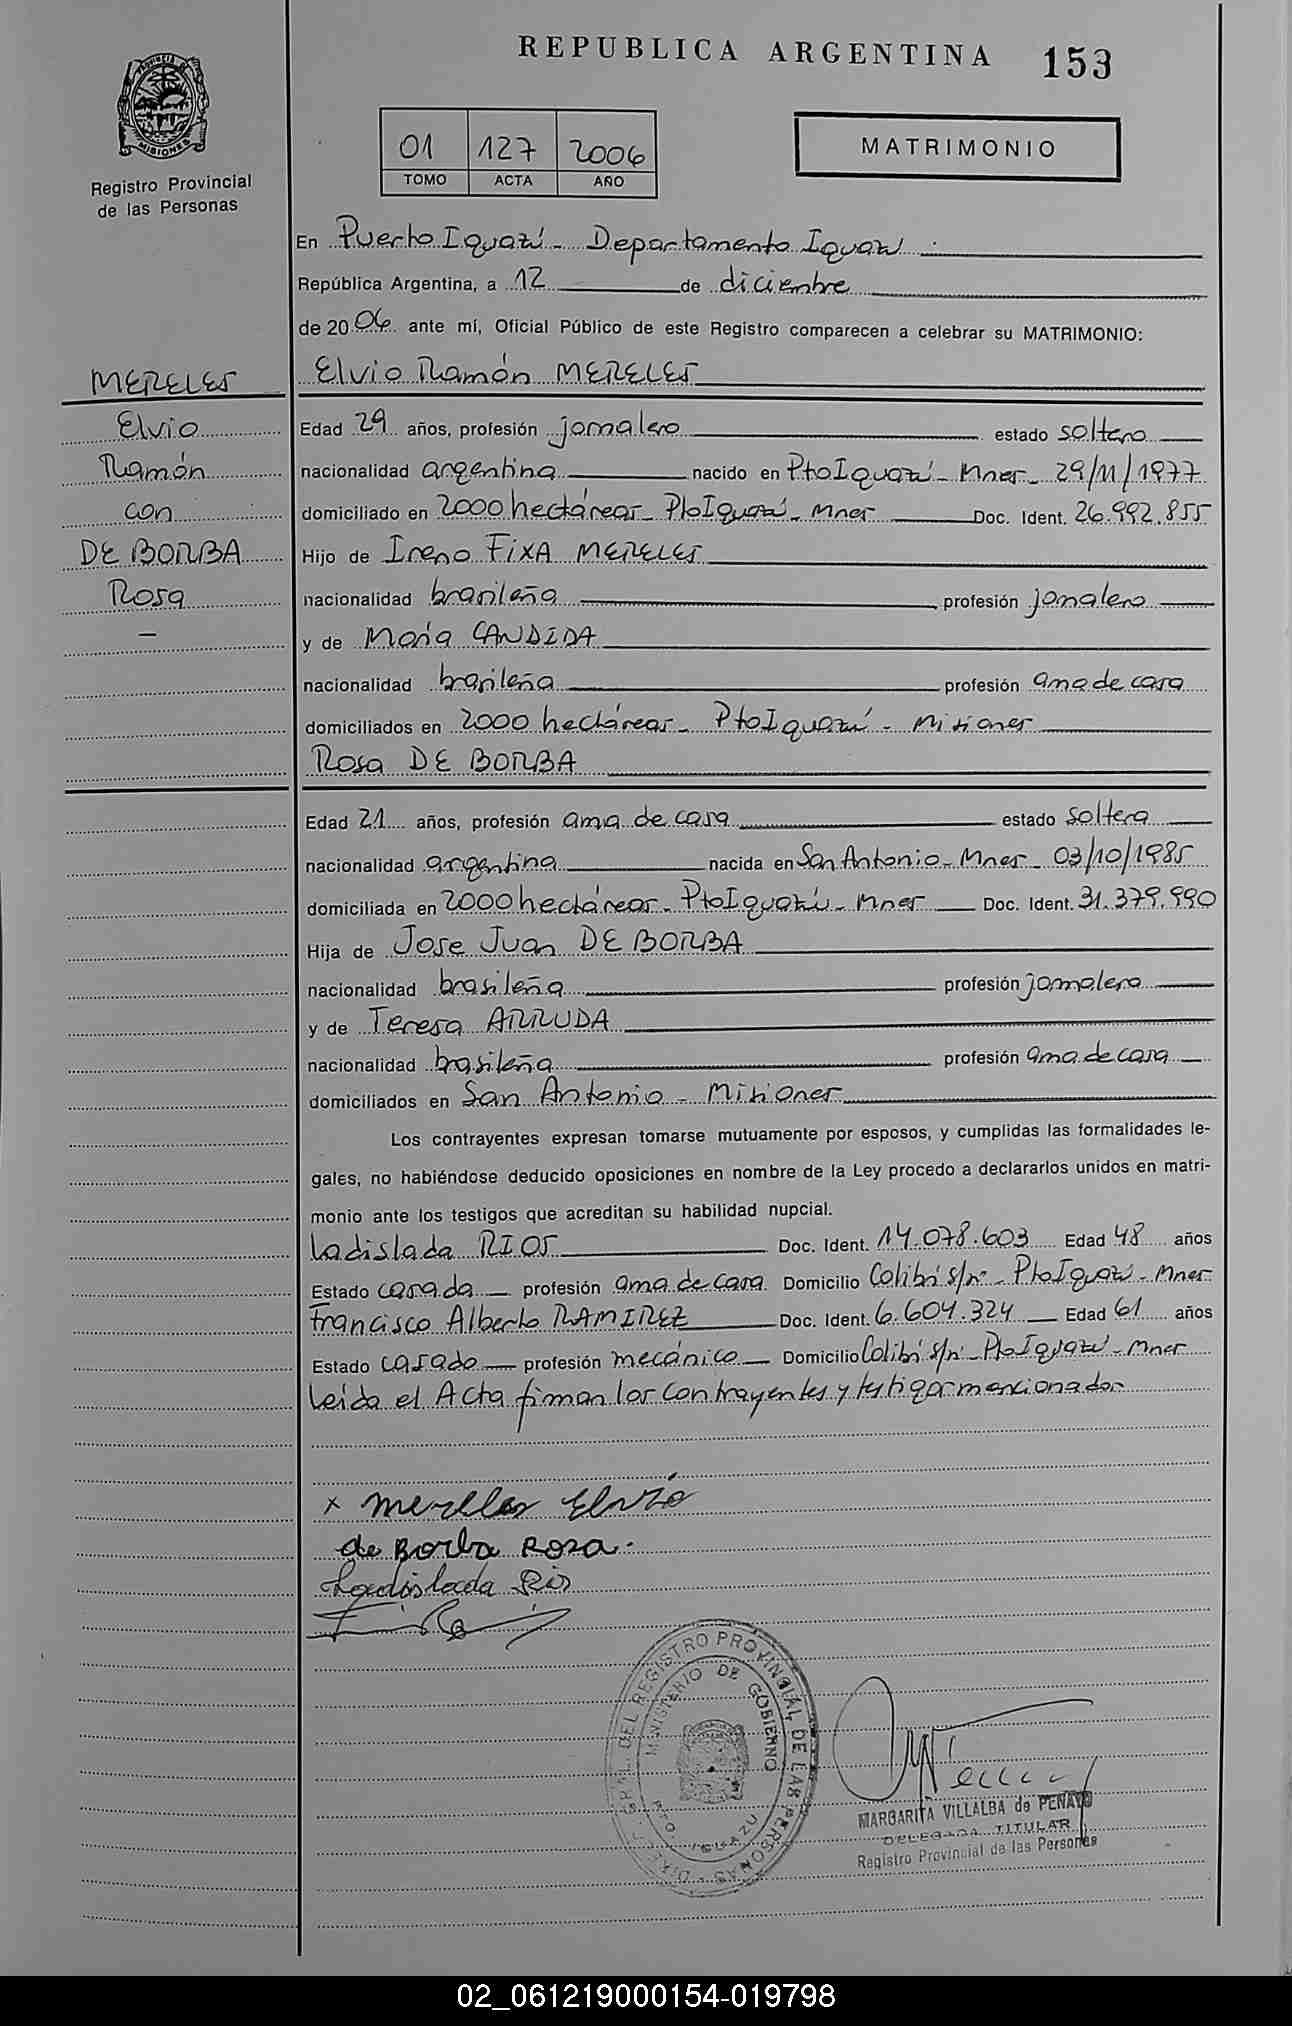 REPUBLICA ARGENTINA 153
PROVINCIA DE MISIONES
Registro Provincial
de las Personas
01 127 2006
TOMO ACTA AÑO
MATRIMONIO
En Puerto Iguazú - Departamento Iguazú
República Argentina, a 12 de diciembre
de 2006 ante mí, Oficial Público de este Registro comparecen a celebrar su MATRIMONIO:
MERELES
Elvio
Ramón
con
DE BORBA
Rosa
-
Elvio Ramón MERELES
Edad 29 años, profesión jornalero estado soltero
nacionalidad argentina nacido en Pto Iguazú - Mnes - 29/11/1977
domiciliado en 2000 hectáreas - Pto Iguazú - Mnes Doc. Ident. 26.992.855
Hijo de Ireno FIXA MERELES
nacionalidad brasileña profesión jornalero
y de Maria CANDIDA
nacionalidad brasileña profesión ama de casa
domiciliados en 2000 hectáreas - Pto Iguazú - Misiones
Rosa DE BORBA
Edad 21 años, profesión ama de casa estado soltera
nacionalidad argentina nacida en San Antonio - Mnes - 03/10/1985
domiciliada en 2000 hectáreas - Pto Iguazú - Mnes Doc. Ident. 31.379.990
Hija de Jose Juan DE BORBA
nacionalidad brasileña profesión jornalero
y de Teresa ARRUDA
nacionalidad brasileña profesión ama de casa
domiciliados en San Antonio - Misiones
Los contrayentes expresan tomarse mutuamente por esposos, y cumplidas las formalidades le-
gales, no habiéndose deducido oposiciones en nombre de la Ley procedo a declararlos unidos en matri-
monio ante los testigos que acreditan su habilidad nupcial.
Ladislada RIOS Doc. Ident. 14.078.603 Edad 48 años
Estado casada profesión ama de casa Domicilio Colibrí s/nº - Pto Iguazú - Mnes
Francisco Alberto RAMIREZ Doc. Ident. 6.604.324 Edad 61 años
Estado casado profesión mecánico Domicilio Colibrí s/nº - Pto Iguazú - Mnes
Leída el Acta firman los contrayentes y testigos mencionados
x Mereles Elvio
de Borba Rosa.
Ladislada Rios
DEL REGISTRO PROVINCIAL DE LAS PERSONAS
MINISTERIO DE GOBIERNO
PTO. IGUAZU
MARGARITA VILLALBA de PENAYO
DELEGADA TITULAR
Registro Provincial de las Personas
02_061219000154-019798